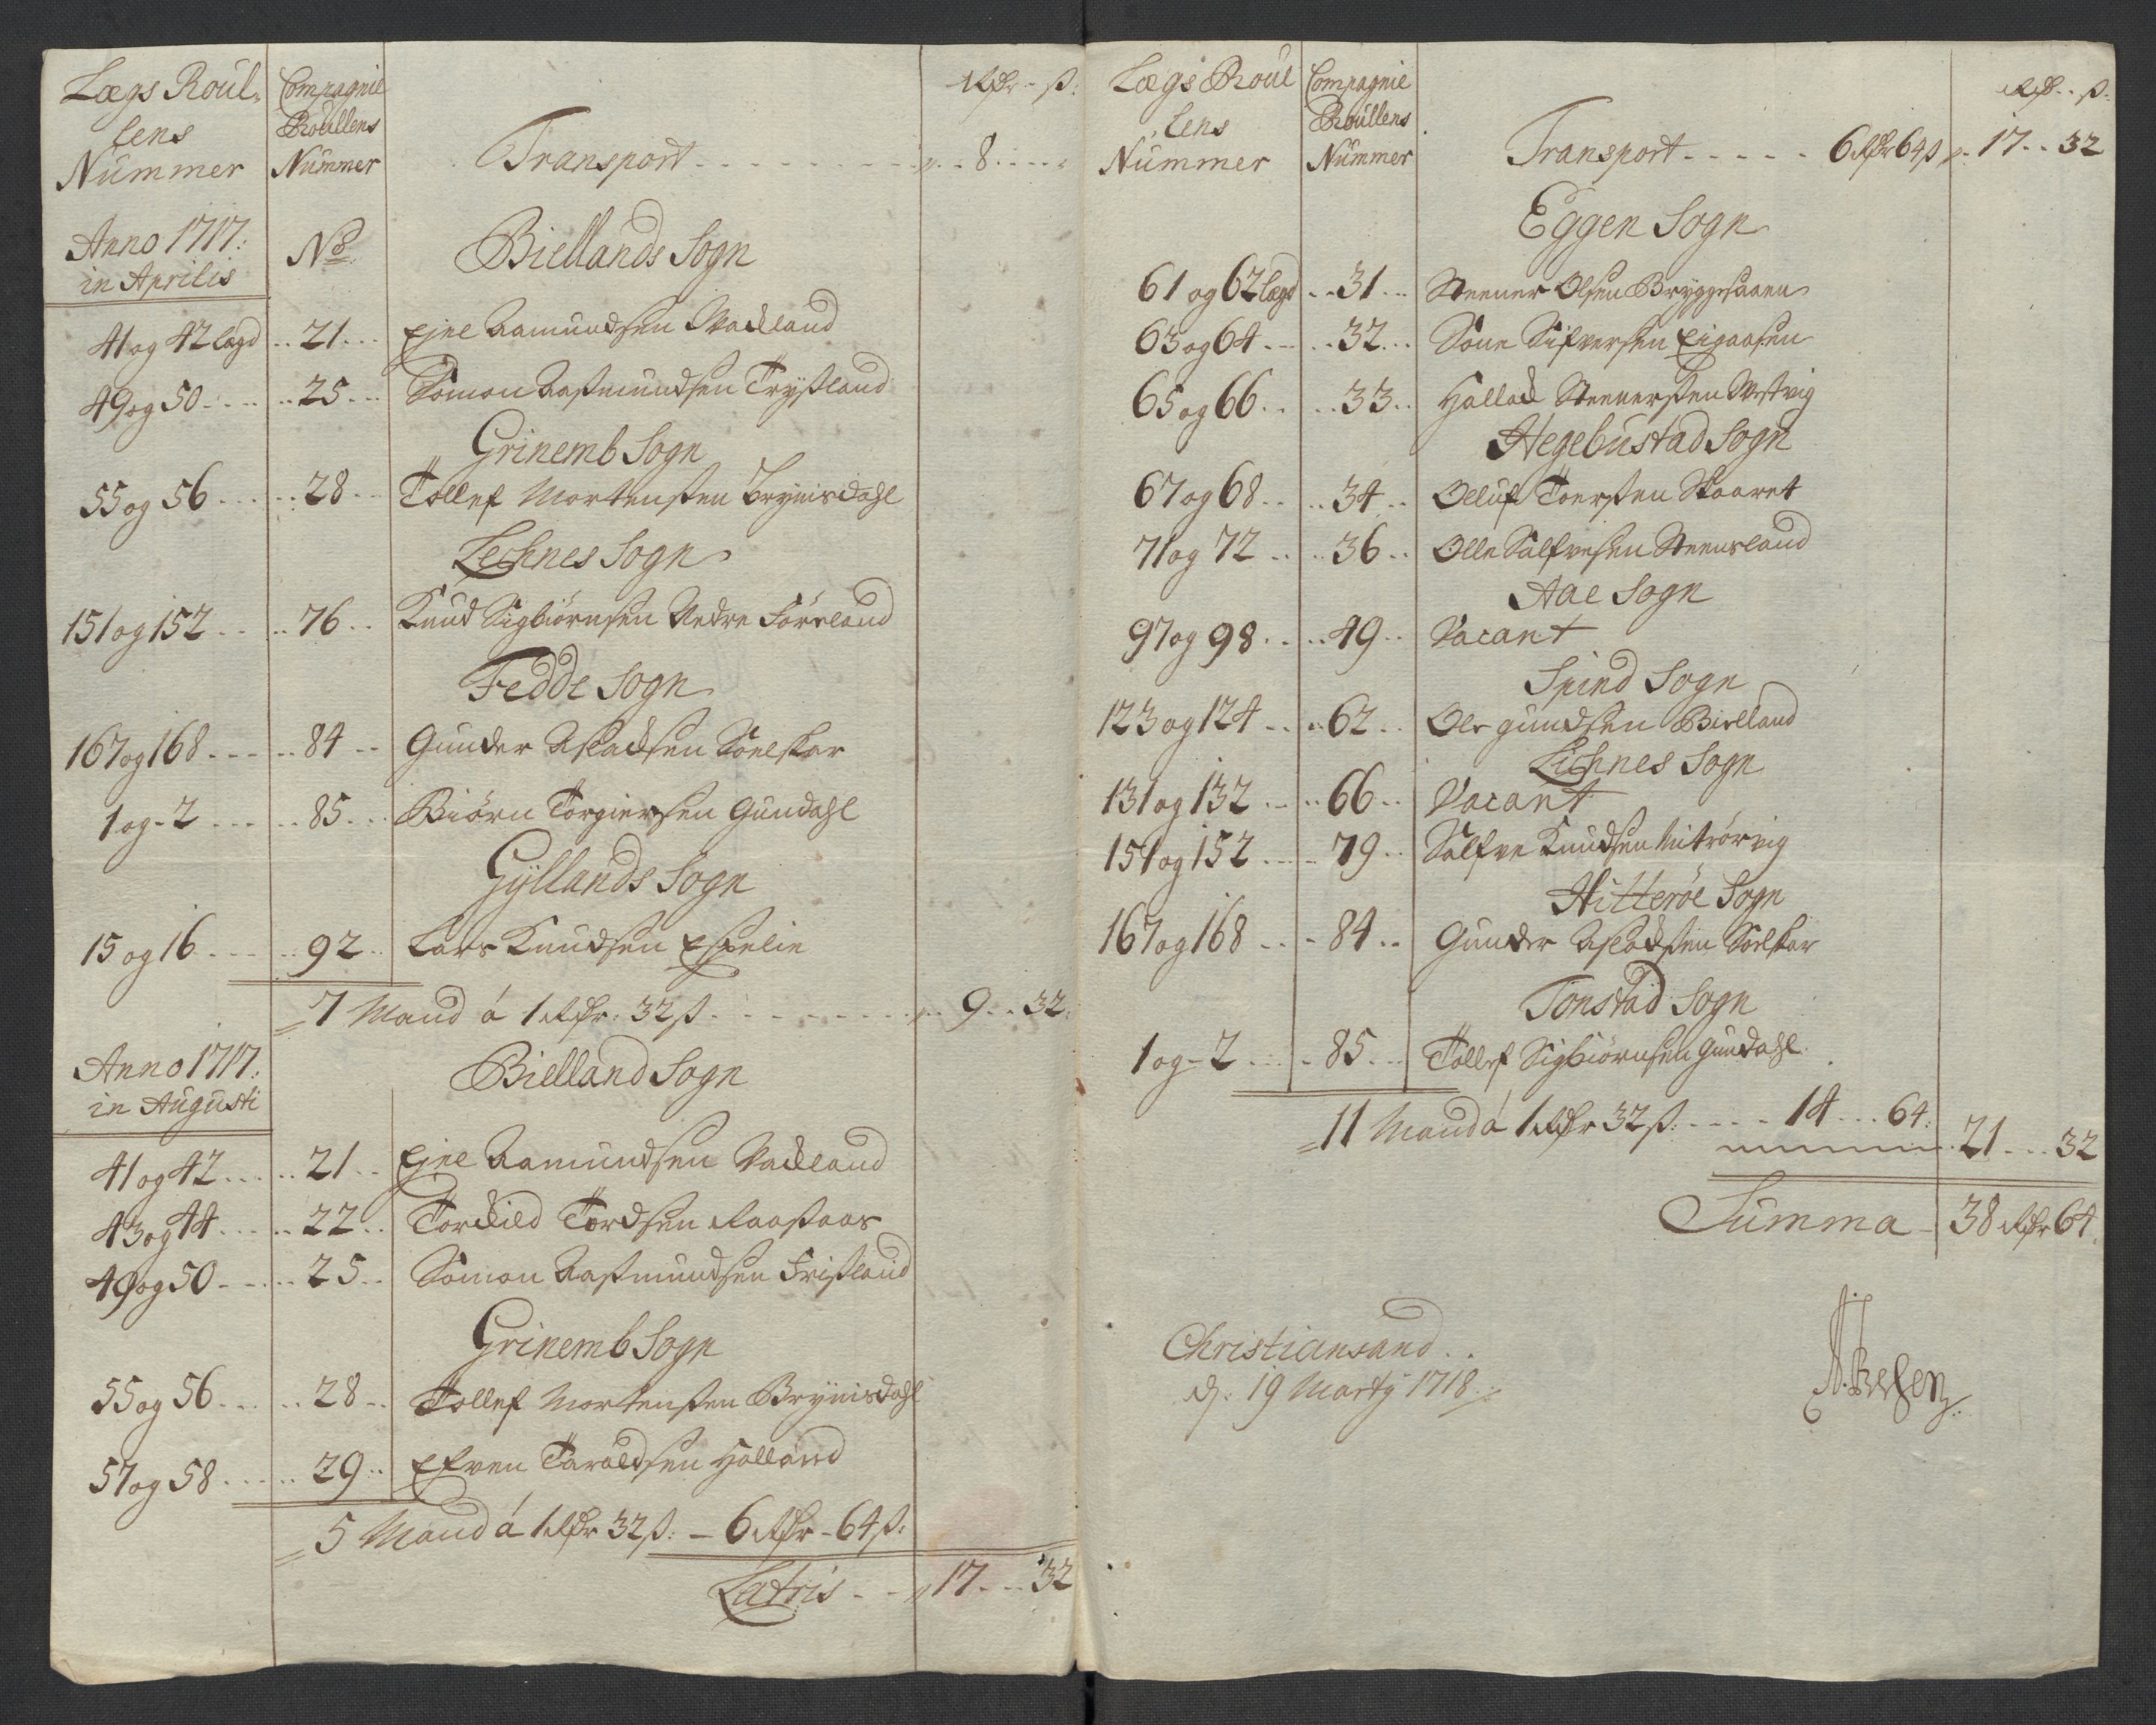 Lægs Roul-
lens
Nummer
Compagnie
Roullens
Nummer
Rdr - ß:
Transport - - - - - - - - 8 - - -
Anno 1717:
in Aprilis
No
Biellands Sogn
41 og 42 lægd - - 21 - - Ejel Aamundsen Vadland
49 og 50 - - - - 25 - - Somon Aasmundsen Trysland
Grinemb Sogn
55 og 56 - - - - 28 - - Tollef Mortensen Brynisdahl
Lechnes Sogn
151 og 152 - - - - 76 - - Knud Sigbiørnsen Nedre Förland
Fedde Sogn
167 og 168 - - - - 84 - - Gunder Aschadsen
1 og - 2 - - - - 85 - - Biörn Torgiersen Gundahl
Gyllands Sogn
15 og 16 - - - - 92 - - Lars Knudsen Espelie
7 Mand á 1 Rdr. 32 ß - - - - - 9 - - 32
Anno 1717:
in Augusti
Bielland Sogn
41 og 42 - - - - 21 - - Ejel Aamundsen Vadland
43 og 44 - - - - 22 - - Torkild Tordsen
49 og 50 - - - - 25 - - Somon Aasmundsen Frisland
Grinemb Sogn
55 og 56 - - - - 28 - - Tollef Mortensen Brynisdahl
57 og 58 - - - - 29 - - Efven Taraldsen Holland
5 Mand á 1 Rdr 32 ß: - 6 Rdr - 64 ß:
Latris - - 17 - - 32
Lægs Roul
lens
Nummer
Compagnie
Roullens
Nummer
Rdr - - ß:
Transport - - - - - 6 Rdr 64 ß - 17 - - 32
Eggen Sogn
61 og 62 lægd - - 31 - - Steener Olsen Bryggesaaen
63 og 64 - - - - 32 - - Sone Sifversen Eigaasen
65 og 66 - - - - 33 - - Hallad Steenersen
Hegebustad Sogn
67 og 68 - - - - 34 - - Olluf Toersen Skaaret
71 og 72 - - - - 36 - - Olle Salfvesen Steensland
Aae Sogn
97 og 98 - - - - 49 - - Vacant
Spind Sogn
123 og 124 - - - - 62 - - Ole gundsen Bielland
Lichnes Sogn
131 og 132 - - - - 66 - - Vacant
151 og 152 - - - - 79 - - Salfve Knudsen
Hitteröe Sogn
167 og 168 - - - 84 - - Gunder Aschadsen
Tonstad Sogn
1 og - 2 - - - 85 - - Tollef Sigbiörnsen Gundahl
11 Mand á 1 Rdr 32 ß: - - - - 14 - - - 64:
21 - - - 32
Summa - 38 Rdr 64
Christiansand
d: 19 Marty 1718